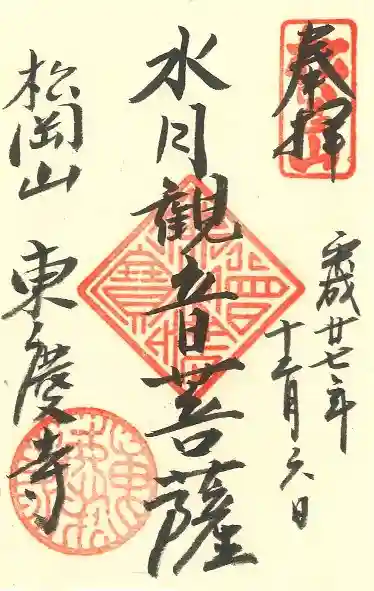 奉拝
平成廿七年
十二月六日
水月観音菩薩
松岡山 東慶寺